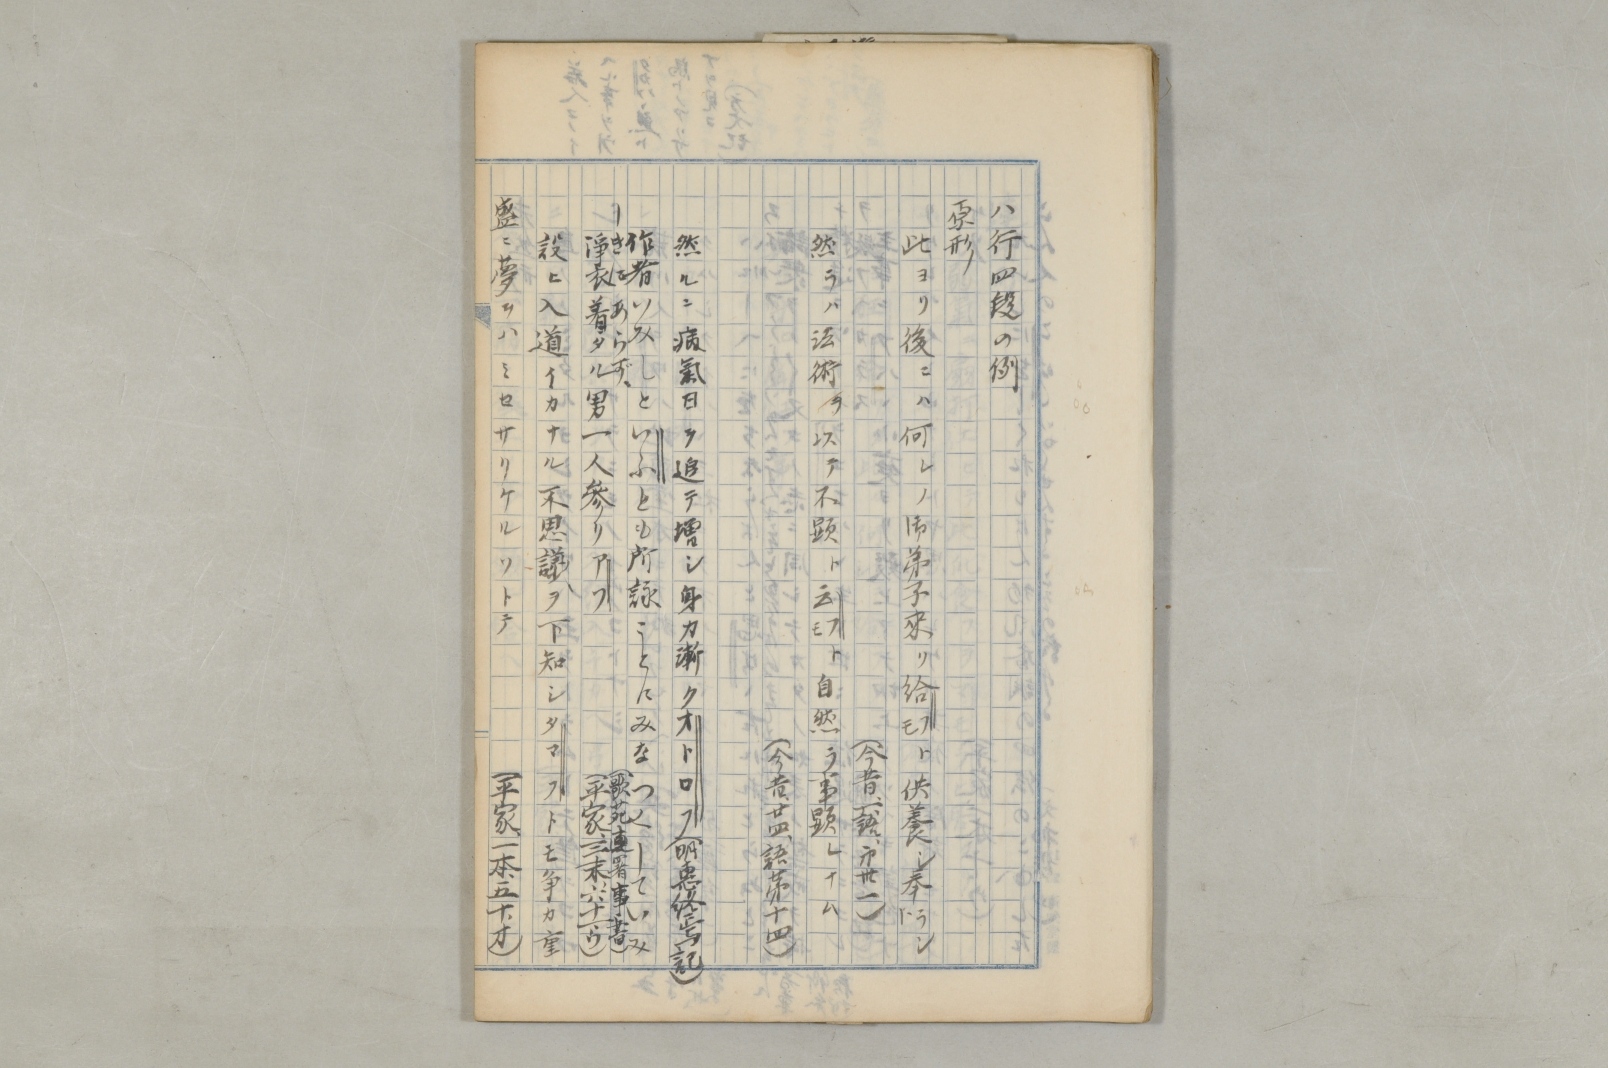 ハ行四段の例
原形
此ヨリ後ニハ何レノ御弟子来リ給フモト供養シ奉ラント
(今昔、一、語、第卅一)
然ラバ法術ヲ以テ不顕ト云フモト自然ラ事顕レナム
(今昔、廿四、語第十四)
然ルニ病氣日ヲ追テ増シ身力漸クオトロフ(明恵終焉記)
作者いみしといふとも所詠ことにみなつくしていみ
しきにあらず、(歌苑連署事書)
浄衣着タル男一人參リアフ(平家、三末、六十一ウ)
設ヒ入道イカナル不思議ヲ下知シタマフトモ争カ重
盛ニ夢ヲハミセサリケルソトテ(平家、一本、五十、オ)